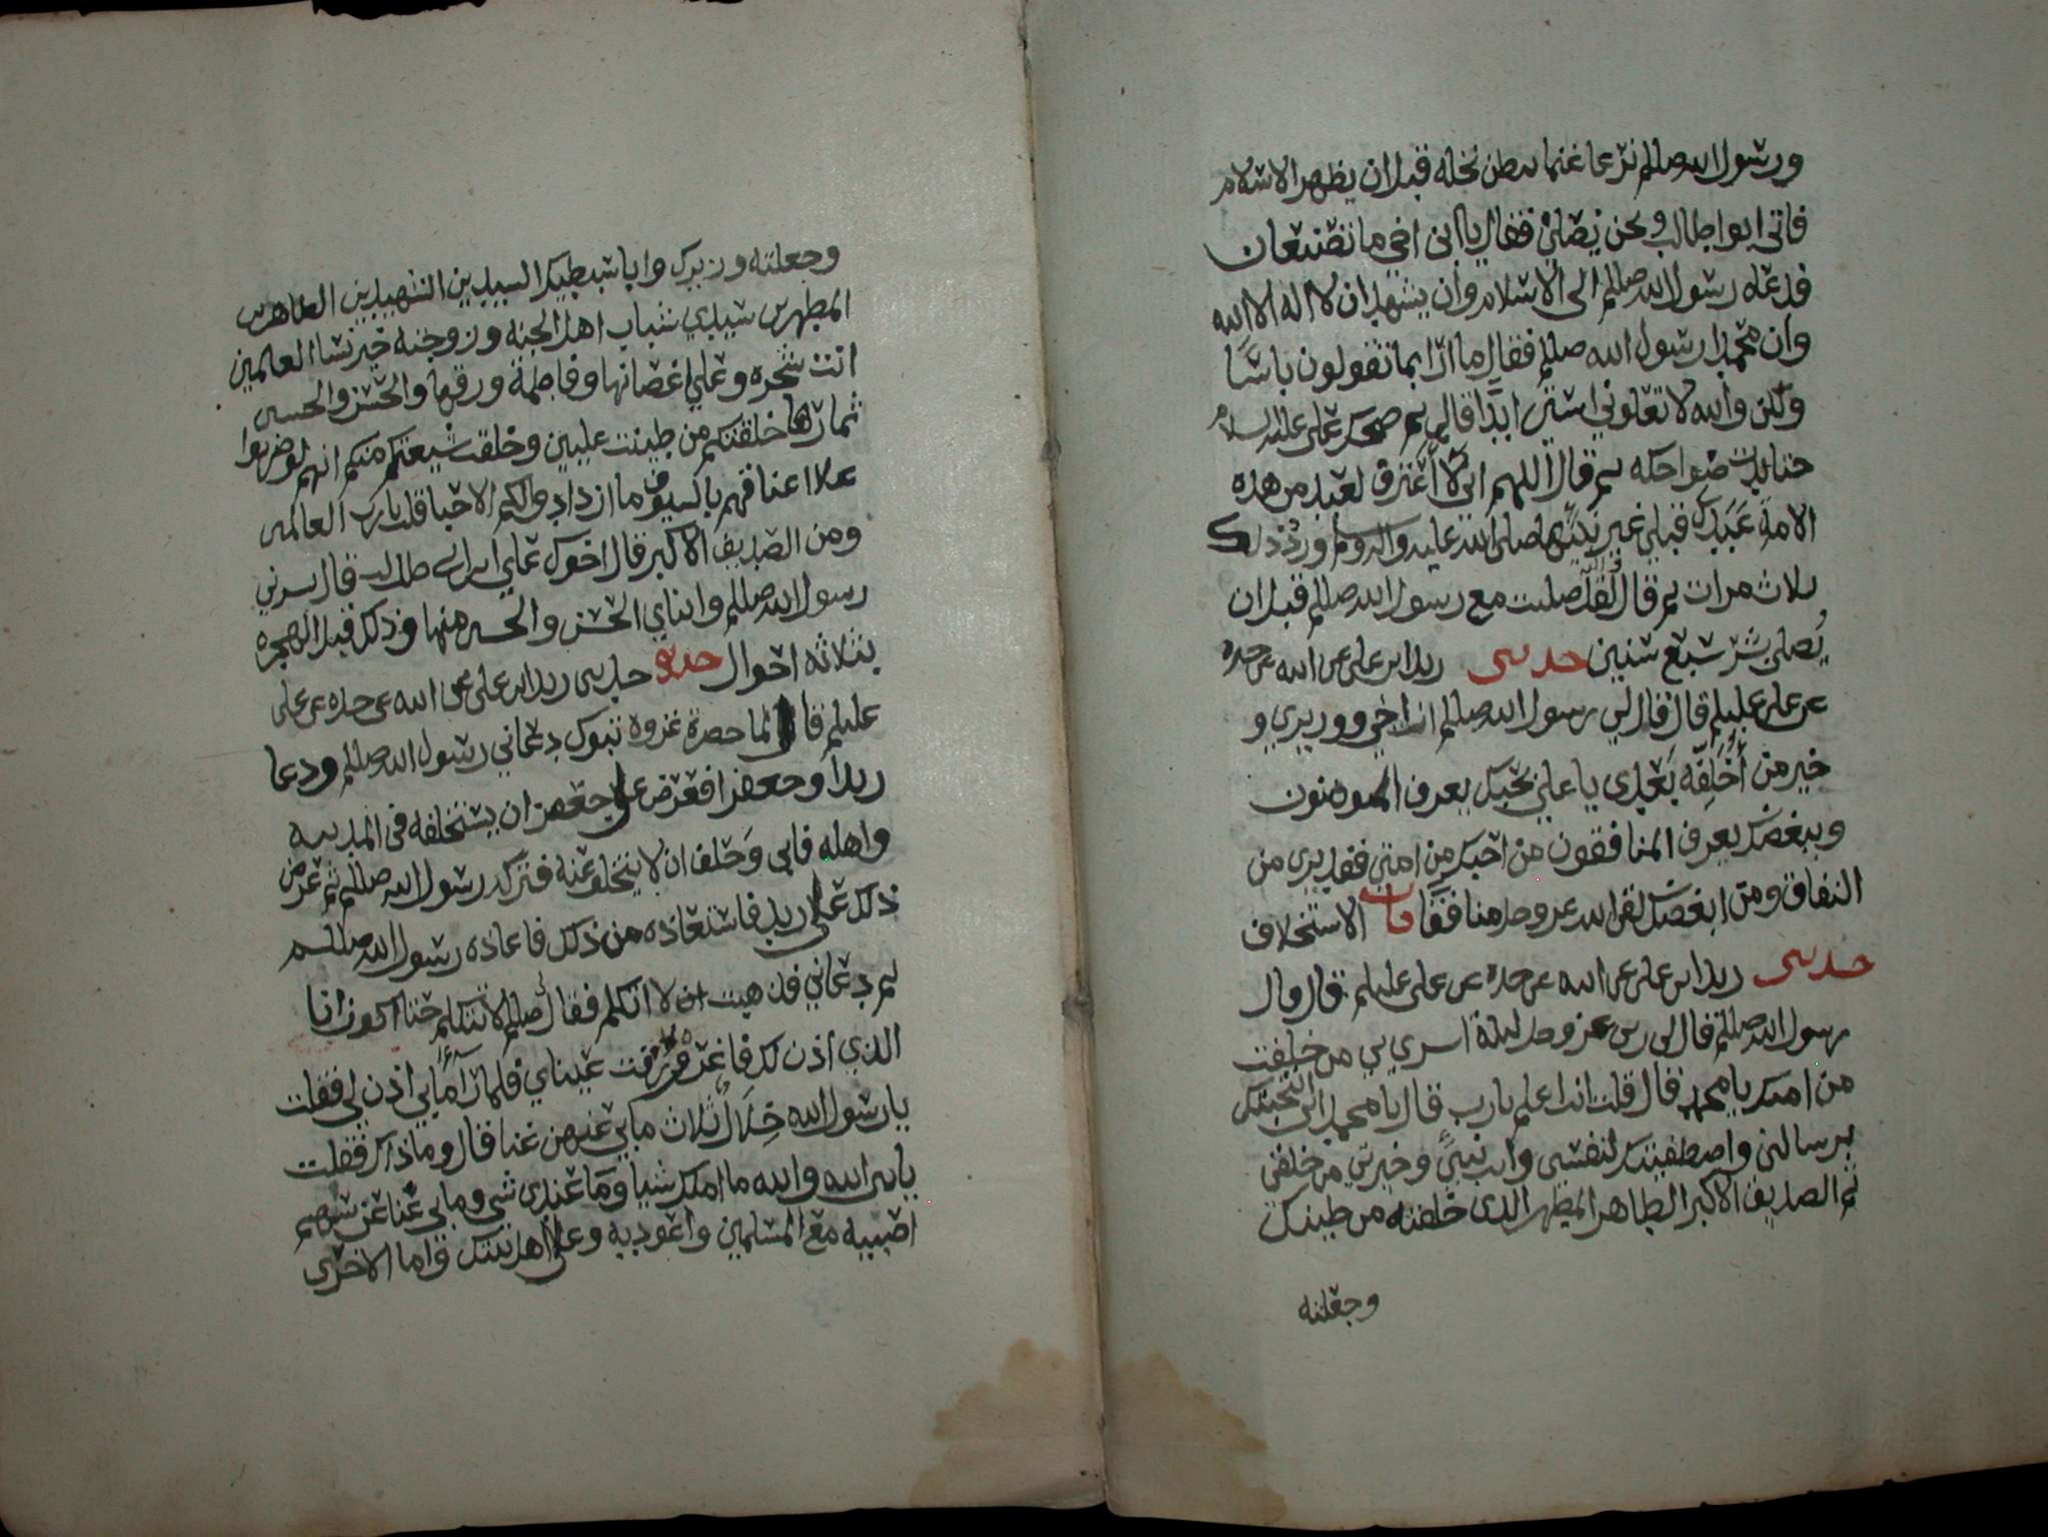 ورسول الله صللم نرعا غنما ببطن نخله قبل ان يظهر الاسلام
فاتى ابوا طالب ونحن نصلي فقال يا بن اخي ما تصنعان
فدعاه رسول الله صللم الى الاسلام وان يشهد ان لا اله الا الله
وان محمدا رسول الله صللم فقال ما ارا بما تقولون باسا
ولكن والله لا تعلوني استي ابدا قال ثم ضحك علي عليه السلام
حتا بدت ضواحكه ثم قال اللهم اني لا اعترف لعبد من هذه
الامة عبدك قبلي غير نبيها صلى الله عليه واله وسلم وردد ذلك
ثلاث مرات ثم قال لقد صليت مع رسول الله صللم قبل ان
يصلي بشر سبع سنين حدثني زيد ابن علي عن ابيه عن جده
عن علي عليلم قال قال لي رسول الله صللم انت اخي ووزيري و
خير من أخلفه بعدي يا علي بحبك يعرف المومنون
وببغضك يعرف المنافقون من احبك من امتي فقد بري من
النفاق ومن ابغضك لقى الله عز وجل منافقا باب الاستخلاف
حدثني زيد ابن علي عن ابيه عن جده عن علي عليلم قال قال
رسول الله صللم قال لي ربي عز وجل ليلة اسري بي من خلفت
من امتك يا محمد قال قلت انت اعلم يارب قال يا محمد اني انتجبتك
برسالتي واصطفيتك لنفسي وانت نبيي وخيرتي من خلقي
ثم الصديق الاكبر الطاهر المطهر الذي خلقته من طينتك
وجعلته
وجعلته وزيرك وابا سبطيك السيدين الشهيدين الطاهرين
المطهرين سيدي شباب اهل الجنه وزوجته خير نسا العالمين
انت شجره وعلي اغصانها وفاطمة ورقها والحسن والحسين
ثمارها خلقتكم من طينت عليين وخلقت شيعتكم منكم انهم لو ضربوا
علا اعناقهم بالسيوف ما ازدادوا لكم الا حبا قلت يارب العالمين
ومن الصديق الاكبر قال اخوك علي ابن ابي طالب قال بشرني
رسول الله صللم وابناي الحسن والحسين منها وذلك قبل الهجره
بثلاثه احوال حدثني حدثني زيد ابن علي عن ابيه عن جده عن علي
عليلم قال لما حضرة غزوة تبوك دعاني رسول الله صللم ودعا
زيدا وجعفرا فعرض على جعفر ان يستخلفه في المدينه
واهله فابى وحلف ان لا يتخلف عنه فتركه رسول الله صللم ثم عرض
ذلك على زيد فاستعاذه من ذلك فاعاذه رسول الله صللم
ثم دعاني فذهبت ان لا اتكلم فقال صللم لا تتكلم حتا اكون انا
الذي اذن لك فاغرورقت عيناي فلما رآ ما بي اذن لي فقلت
يا رسول الله خلال ثلاث ما بي عنهن غنا قال وما ذاك فقلت
يا نبي الله والله ما املك شيا وما عندي شي وما بي غنا عن سهم
اصيبه مع المسلمين واعود به وعلى اهل بيتك واما الاخرى